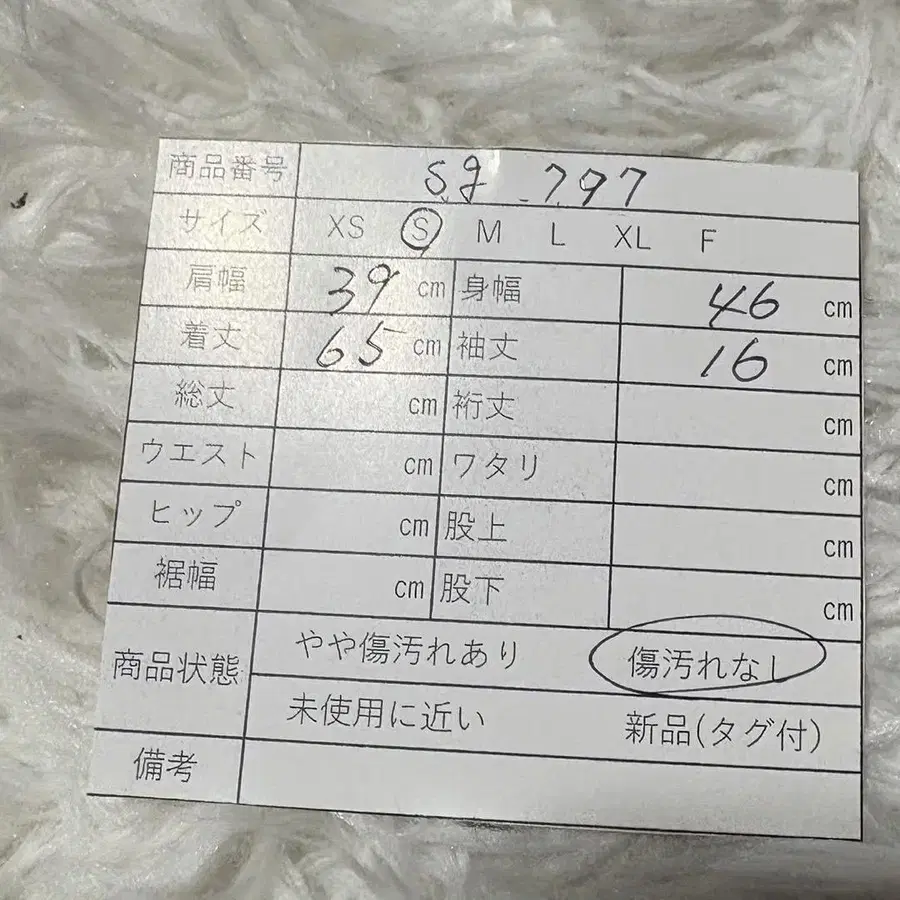 商品番号 sg-797
サイズ XS S M L XL F
肩幅 39 cm 身幅 46 cm
着丈 65 cm 袖丈 16 cm
総丈 cm 裄丈 cm
ウエスト cm ワタリ cm
ヒップ cm 股上 cm
裾幅 cm 股下 cm
商品状態 やや傷汚れあり 傷汚れなし
未使用に近い 新品(タグ付)
備考